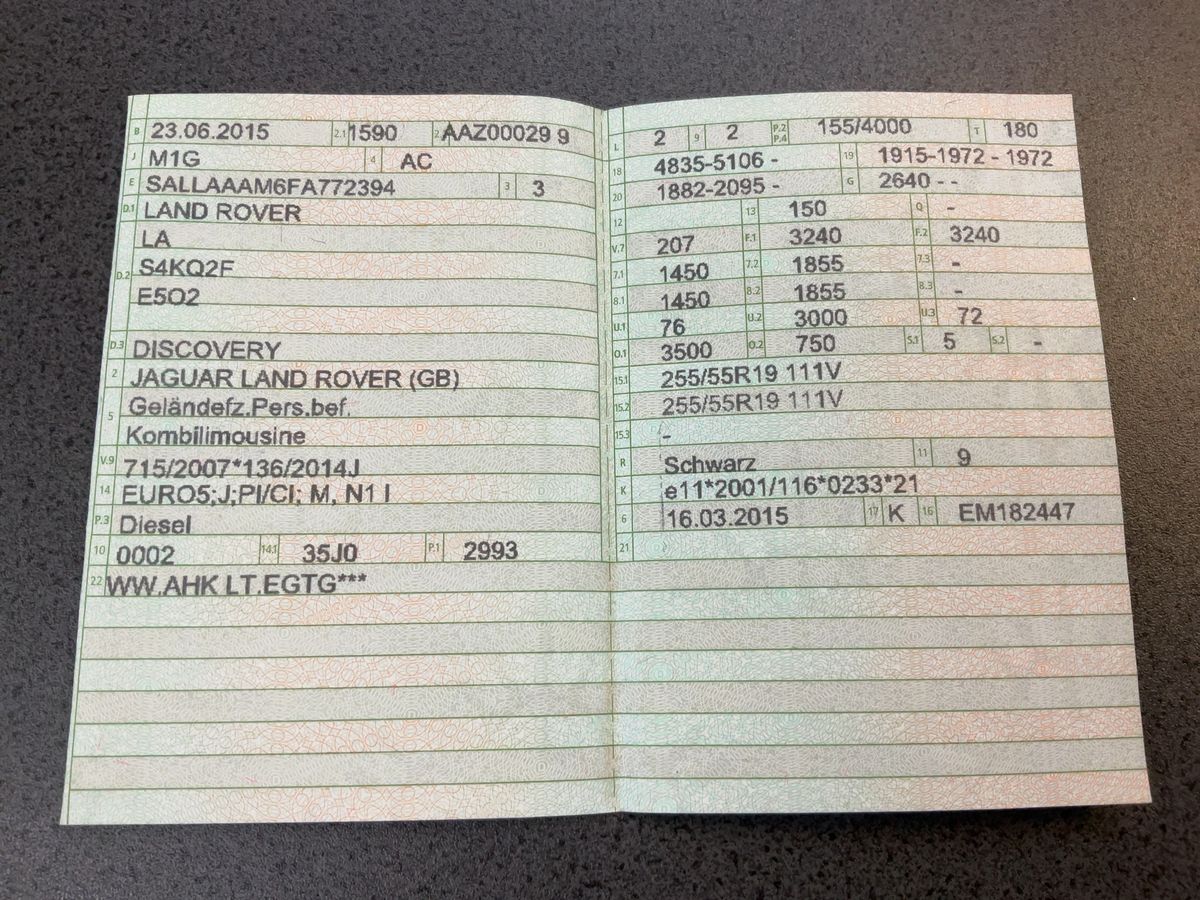 B 23.06.2015 2.1 1590 AAZ00029 9
J M1G 4 AC
E SALLAAAM6FA772394 3 3
D.1 LAND ROVER
LA
D.2 S4KQ2F
E5O2
D.3 DISCOVERY
2 JAGUAR LAND ROVER (GB)
5 Geländefz.Pers.bef.
Kombilimousine
V.9 715/2007*136/2014J
14 EURO5;J;PI/CI; M, N1 I
P.3 Diesel
10 0002 14.1 35J0 P.1 2993
22 WW.AHK LT.EGTG***
L 2 9 2 P.2 P.4 155/4000 T 180
18 4835-5106 - 19 1915-1972 - 1972
20 1882-2095 - G 2640 - -
12 13 150 Q -
V.7 207 F.1 3240 F.2 3240
7.1 1450 7.2 1855 7.3 -
8.1 1450 8.2 1855 8.3 -
U.1 76 U.2 3000 U.3 72
O.1 3500 O.2 750 S.1 5 S.2 -
15.1 255/55R19 111V
15.2 255/55R19 111V
15.3 -
R Schwarz 11 9
K e11*2001/116*0233*21
6 16.03.2015 17 K 16 EM182447
21